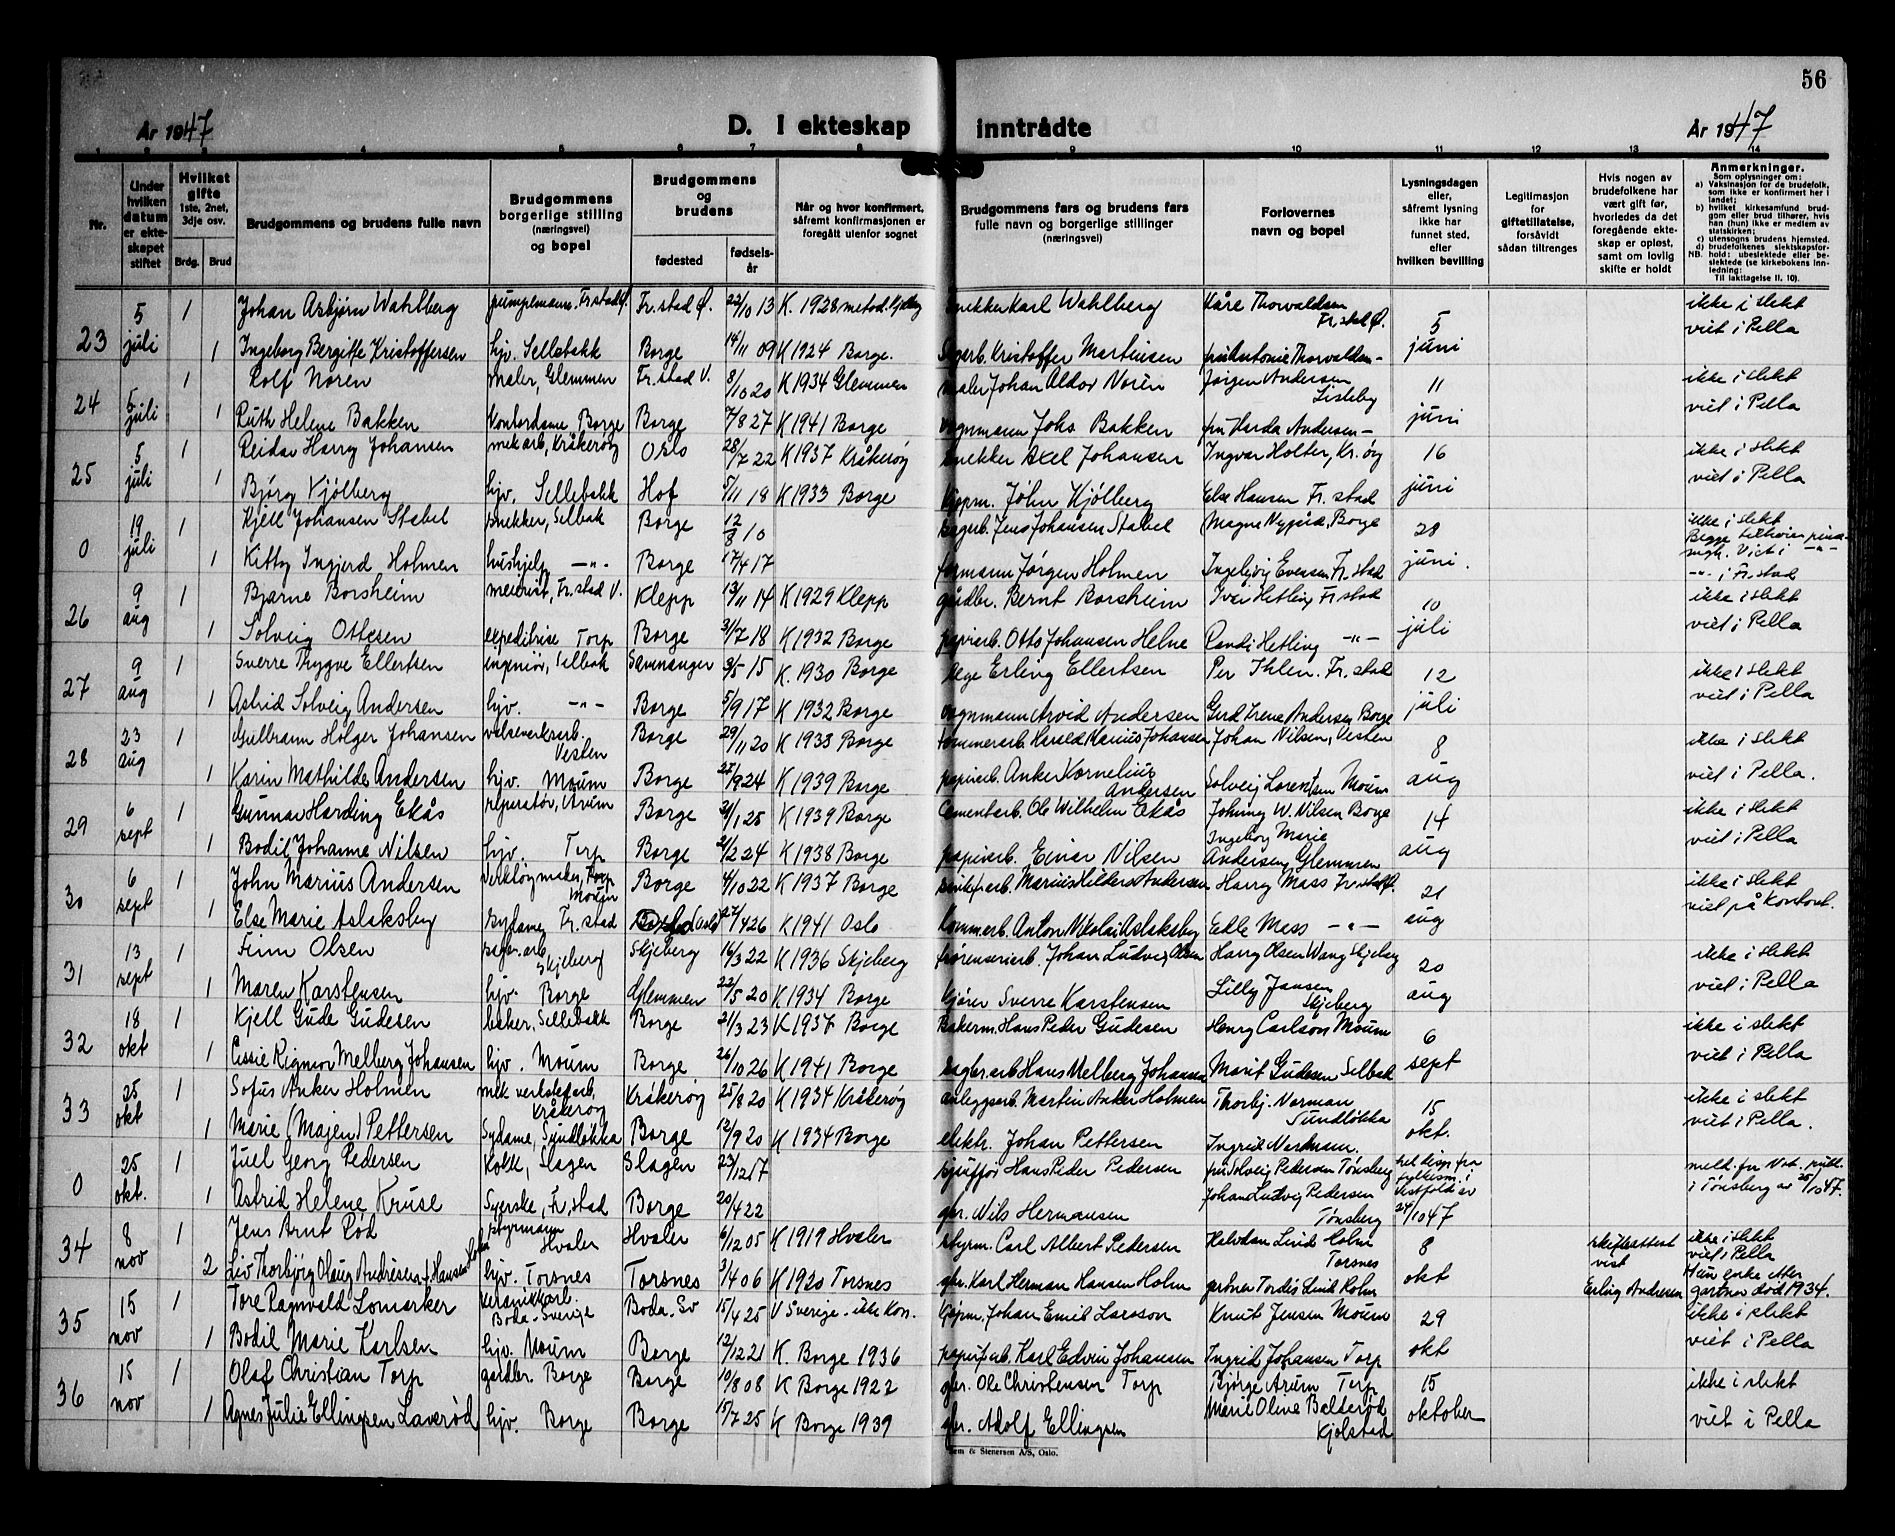 56
År 1947 D. I ekteskap inntrådte År 1947
1 2 3 4 5 6 7 8 9 10 11 12 13 14
Nr.
Under hvilken datum er ekteskapet stiftet
Hvilket gifte 1ste, 2net, 3dje osv.
Brdg. Brud
Brudgommens og brudens fulle navn
Brudgommens borgerlige stilling (næringsvei) og bopel
Brudgommens og brudens
fødested fødselsår
Når og hvor konfirmert, såfremt konfirmasjonen er foregått utenfor sognet
Brudgommens fars og brudens fars fulle navn og borgerlige stillinger (næringsvei)
Forlovernes navn og bopel
Lysningsdagen eller, såfremt lysning ikke har funnet sted, efter hvilken bevilling
Legitimasjon for giftetillatelse, forsåvidt sådan tiltrenges
Hvis nogen av brudefolkene har vært gift før, hvorledes da det foregående ekteskap er opløst, samt om lovlig skifte er holdt
Anmerkninger.
Som oplysninger om:
a) Vaksinasjon for de brudefolk, som ikke er konfirmert her i landet;
b) hvilket kirkesamfund brudgom eller brud tilhører, hvis han (hun) ikke er medlem av statskirken;
c) utensogns brudens hjemsted.
d) brudefolkenes slektskapsforhold: ubeslektede eller beslektede (se kirkebokens innledning:
NB. Til iakttagelse II. 10).
23 5 juli 1 Johan Asbjørn Wahlberg pumpemann. Fr.stad Ø. Fr.stad Ø. 22/10 13 K. 1928 snekker Karl Wahlberg Kåre Thorvaldsen Fr.stad Ø. 5 juni ikke i slekt
1 Ingeborg Bergitte Kristoffersen hjv. Sellebakk Borge 14/11 09 K 1924 Borge. Kristoffer Martinsen fru Antonie Thorvaldsen viet i Pella
24 5 juli 1 Rolf Noren maler, Glemmen Fr.stad V. 8/10 20 K 1934 Glemmen maler Johan Aldor Norén Jørgen Andersen Lisleby 11 juni ikke i slekt
1 Ruth Helene Bakken Kontordame Borge Borge 7/8 27 K 1941 Borge vognmann Johs Bakken fru Harda Andersen - viet i Pella
25 5 juli 1 Reidar Harry Johansen mek arb, Kråkerøy Oslo 28/7 22 K 1937 Kråkerøy snekker Axel Johansen Ingvar Holter, Kr.øy 16 juni ikke i slekt
1 Bjørg Kjølberg hjv. Sellebakk Hof 5/11 18 K 1933 Borge John Kjølberg Else Hansen Fr. stad viet i Pella
0 19 juli 1 Kjell Johansen Stabel snekker, Selbak Borge 12/8 10 Jens Johansen Stabel Magne Nygård, Borge 28 juni. ikke i slekt
1 Kitty Ingjerd Holmen hushjelp -"- Borge 17/4 17 formann Jørgen Holmen Ingebjørg Evensen Fr.stad Begge tilhører pinsemgh. Viet i -"- -"- i Fr.stad
26 9 aug 1 Bjarne Borsheim meierist, Fr.stad V. Klepp 13/11 14 K 1929 Klepp gårdbr. Bernt Borsheim Iver Hetling Fr stad 10 juli ikke i slekt
1 Solveig Ottesen expeditrise Torp Borge 31/7 18 K 1932 Borge papirarb. Otto Johansen Helne Randi Hetling -"- viet i Pella
27 9 aug 1 Sverre Thrygve Ellertsen ingeniør, Selbak Samnanger 3/5 15 K. 1930 Borge Erling Ellertsen Per Ihlen. Fr. stad 12 juli ikke i slekt
1 Astrid Solveig Andersen hjv. -"- Borge 5/9 17 K 1932 Borge vognmann Arvid Andersen Gerd Irene Andersen Borge viet i Pella
28 23 aug 1 Gulbrann Holger Johansen valseverksarb. Vesten Borge 29/11 20 K 1933 Borge tømmerarb. Harald Marius Johansen Johan Nilsen, Vesten 8 aug ikke i slekt
1 Karin Mathilde Andersen hjv. Moum Borge 27/9 24 K 1939 Borge papirarb. Anker Kornelius Andersen Solveig Lorentsen Moum viet i Pella.
29 6 sept 1 Gunnar Harding Ekås reperatør, Årum Borge 21/1 25 K 1939 Borge Cementarb. Ole Wilhelm Ekås Johnny W. Nilsen Borge 14 aug ikke i slekt
1 Bodil Johanne Nilsen hjv. Torp Borge 21/2 24 K 1938 Borge papirarb. Einar Nilsen Ingeborg Marie Andersen, Glemmen viet i Pella
30 6 sept 1 John Marius Andersen Verktøymaker, Torp Moum Borge 4/10 22 K 1937 Borge Marius Hildors Andersen Harry Mass Fr.stad 21 aug ikke i slekt
1 Else Marie Aslaksby Sydame Fr.stad Oslo 27/4 26 K 1941 Oslo tømmerb. Anton Nikolai Aslaksby Edle Mass -"- viet på Kontoret.
31 13 sept 1 Finn Olsen Skjeberg Skjeberg 16/3 22 K 1936 Skjeberg Johan Ludvig Olsen Harry Olsen Wang Skjeberg 20 aug ikke i slekt
1 Maren Karstensen hjv. Borge Glemmen 22/5 20 K 1934 Borge kjører Sverre Karstensen Lilly Jansen Skjeberg viet i Pella
32 18 okt 1 Kjell Gude Gudesen baker, Sellebakk Borge 21/3 23 K 1937 Borge Bakerm. Hans Peder Gudesen Henry Carlson Moum 6 sept ikke i slekt
1 Cissie Rigmor Melberg Johansen hjv. Moum Borge 26/10 26 K 1941 Borge Hans Melberg Johansen Marit Gudesen Selbak viet i Pella
33 25 okt 1 Sofus Anker Holmen mek verkstedarb, Kråkerøy Kråkerøy 25/8 20 K 1934 Kråkerøy anleggsarb. Martin Anker Holmen Thorbj. Norman Sundløkka 15 okt. ikke i slekt
1 Marie (Majen) Pettersen Sydame, Sundløkka Borge 12/9 20 K 1934 Borge elektr. Johan Pettersen Ingrid Nordmann. viet i Pella.
0 25 okt. 1 Juel Georg Pedersen Kokk, Slagen Slagen 23/12 17 sjuffør Hans Peder Pedersen fru Solveig Pedersen Tønsberg fylkesm. i Vestfold av 24/10 47 meld. fra Not. publ. i Tønsberg av 25/10 47.
1 Astrid Helene Kruse Syerske, Fr.stad Borge 20/4 22 gbr. Nils Hermansen Johan Ludvig Pedersen Tønsberg
34 8 nov 1 Jens Arnt Rød styrmann Hvaler Hvaler 6/12 05 K 1919 Hvaler styrm. Carl Albert Pedersen Halvdan Lind Holm Torsnes 8 okt skifteattest vist ikke i slekt viet i Pella
2 Liv Thorbjørg Olaug Andresen f. Hansen hjv. Torsnes Torsnes 3/4 06 K 1920 Torsnes gbr. Karl Herman Hansen Holm gartner Tordis Lind Holm Hun enke etter Erling Andresen gartner død 1934.
35 15 nov 1 Tore Ragnvald Lomarker Boda-Sverige Boda. Sv 15/4 25 V Sverige - ikke kon. Johan Emil Larsson Knut Jensen Moum 29 okt ikke i slekt
1 Bodil Marie Karlsen hjv. Moum Borge 12/12 21 K. Borge 1936 papirfarb. Karl Edvin Johansen Ingrid Johansen Torp viet i Pella
36 15 nov 1 Olaf Christian Torp gårdbr. Borge Borge 10/8 08 K Borge 1922 gbr. Ole Christensen Torp Bjørge Årum Torp 15 oktober ikke i slekt
1 Agnes Julie Ellingsen Laverød hjv. Borge Borge 15/7 25 K Borge 1939 gbr. Adolf Ellingsen Marie Oline Balterød Kjølstad viet i Pella
Sem & Stenersen A/S, Oslo.